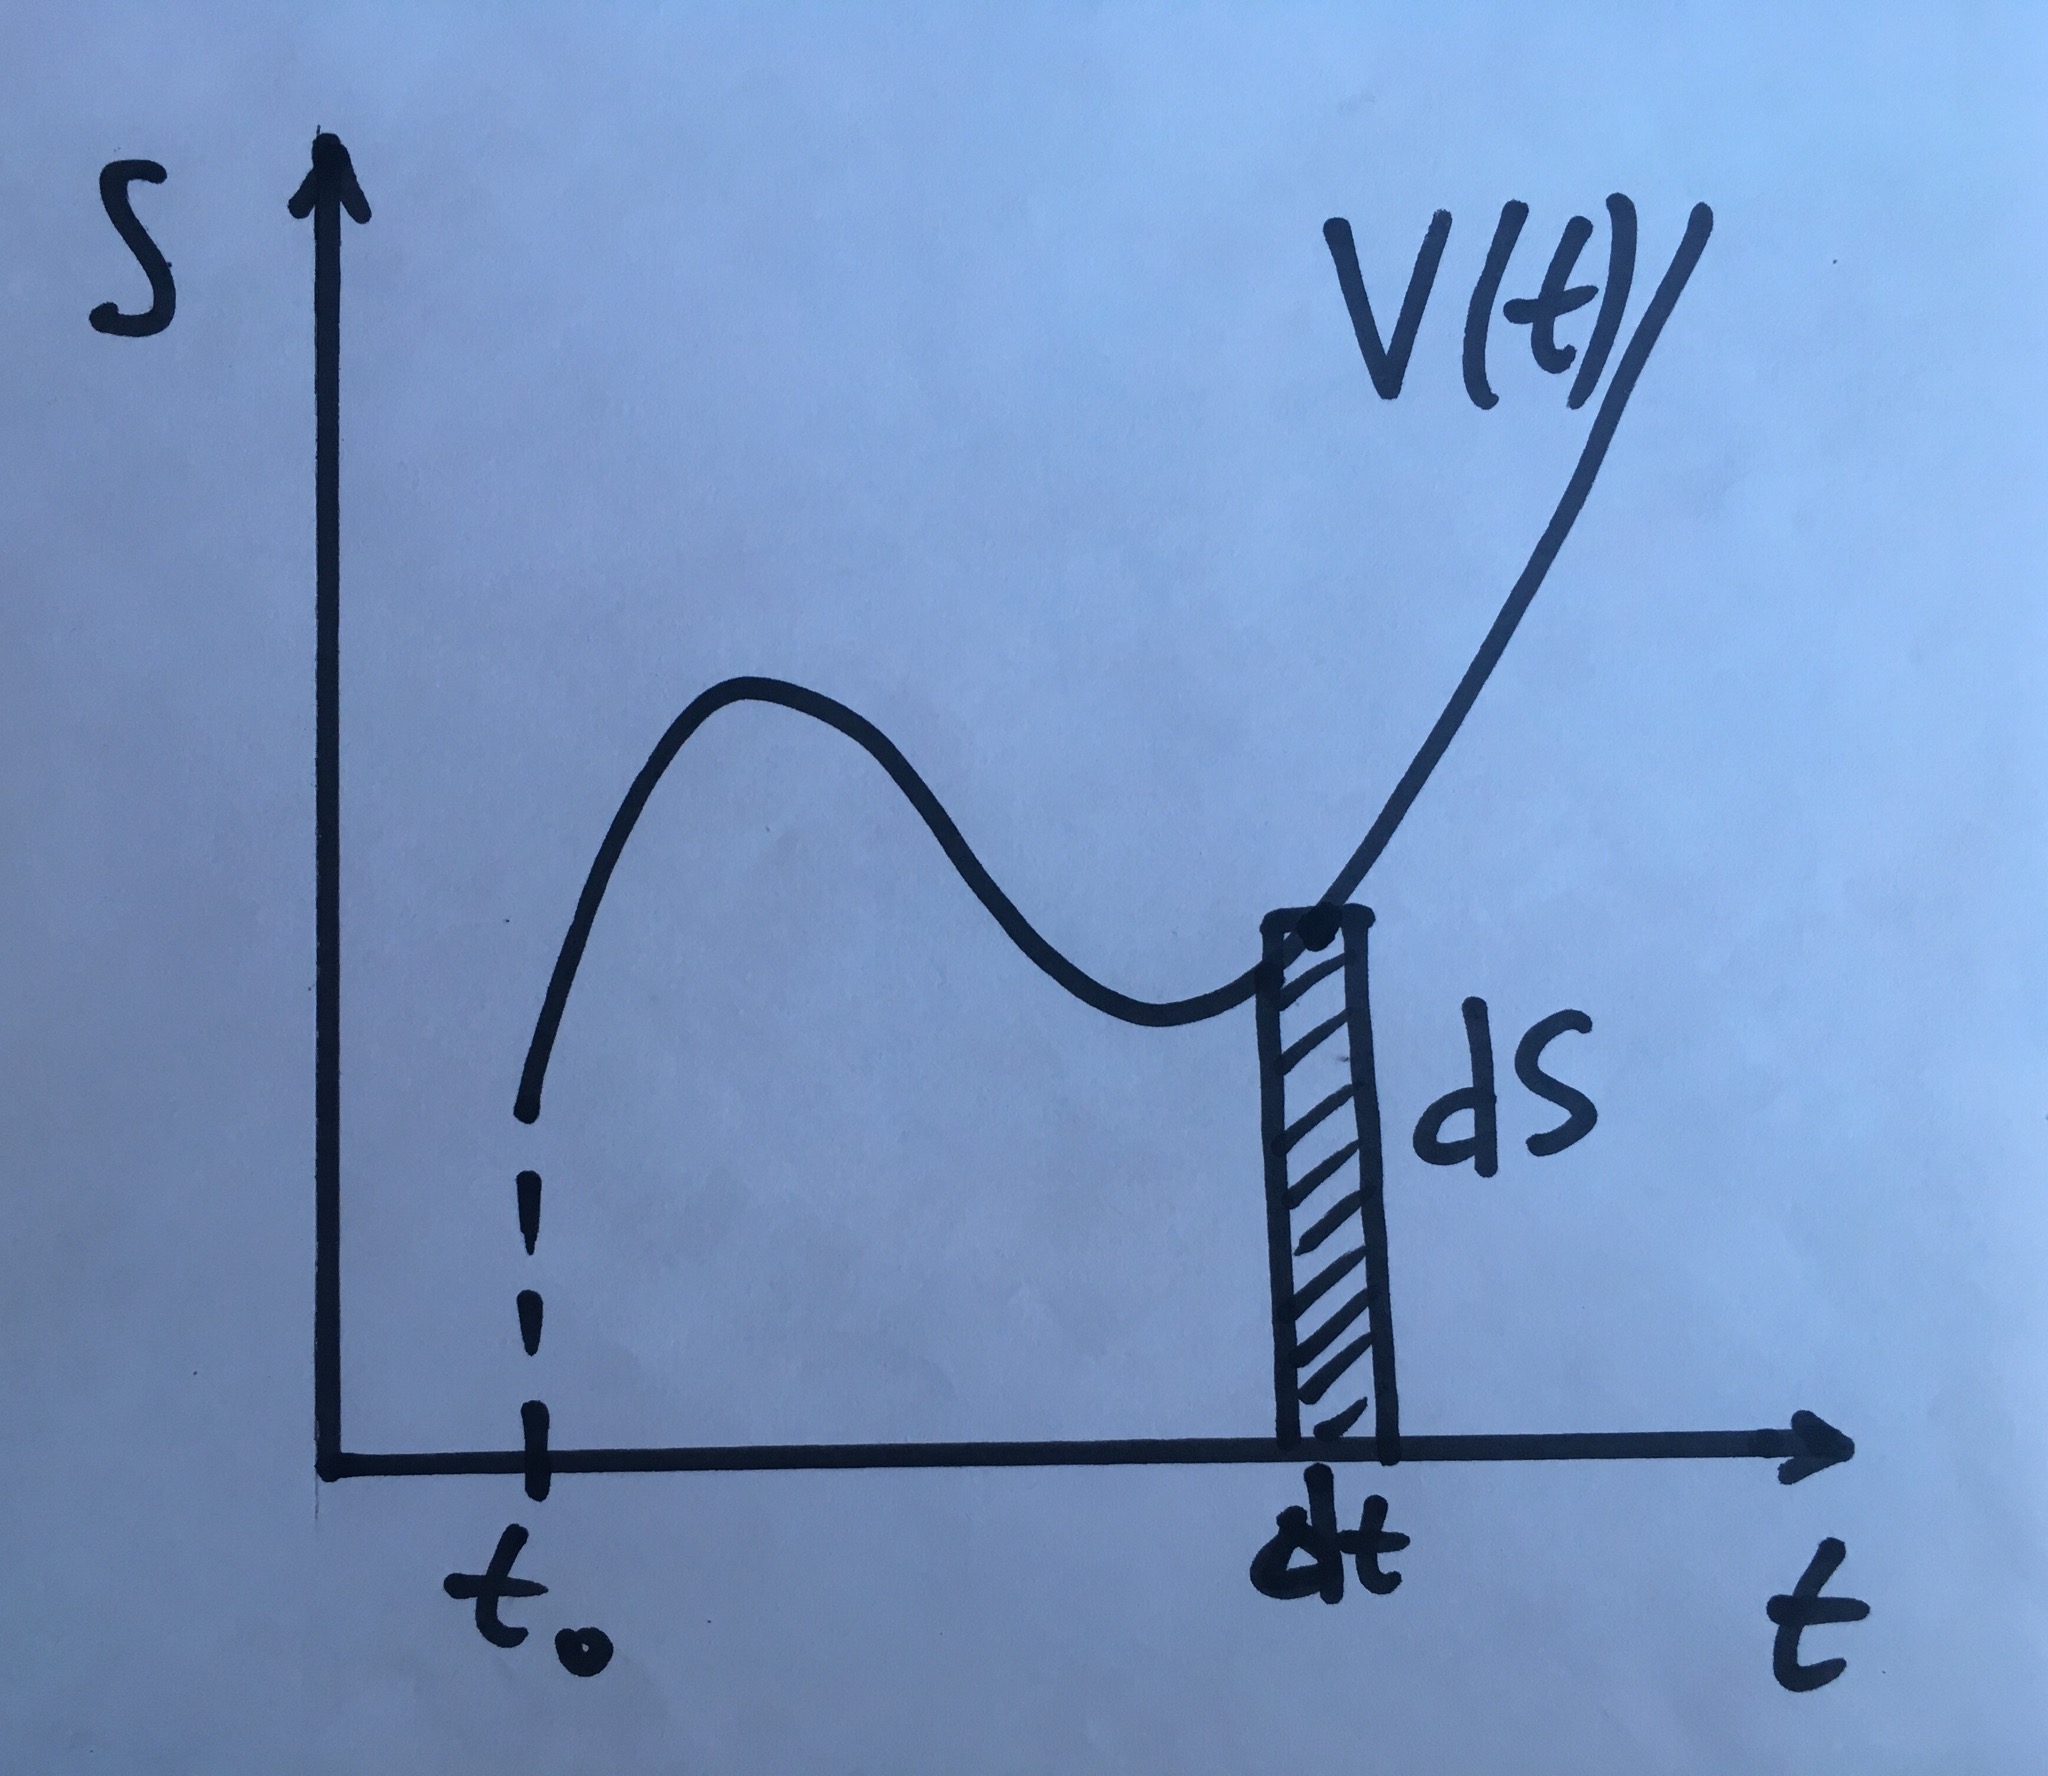 S
V(t)
dS
t₀
dt
t